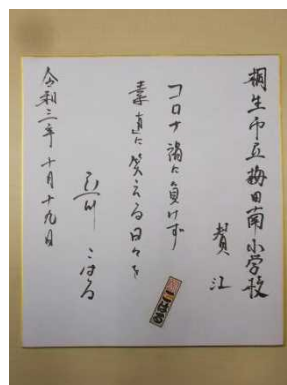 桐生市立梅田南小学校
賛江
コロナ禍に負けず
素直に笑える日々を
こはる
令和三年十月十九日